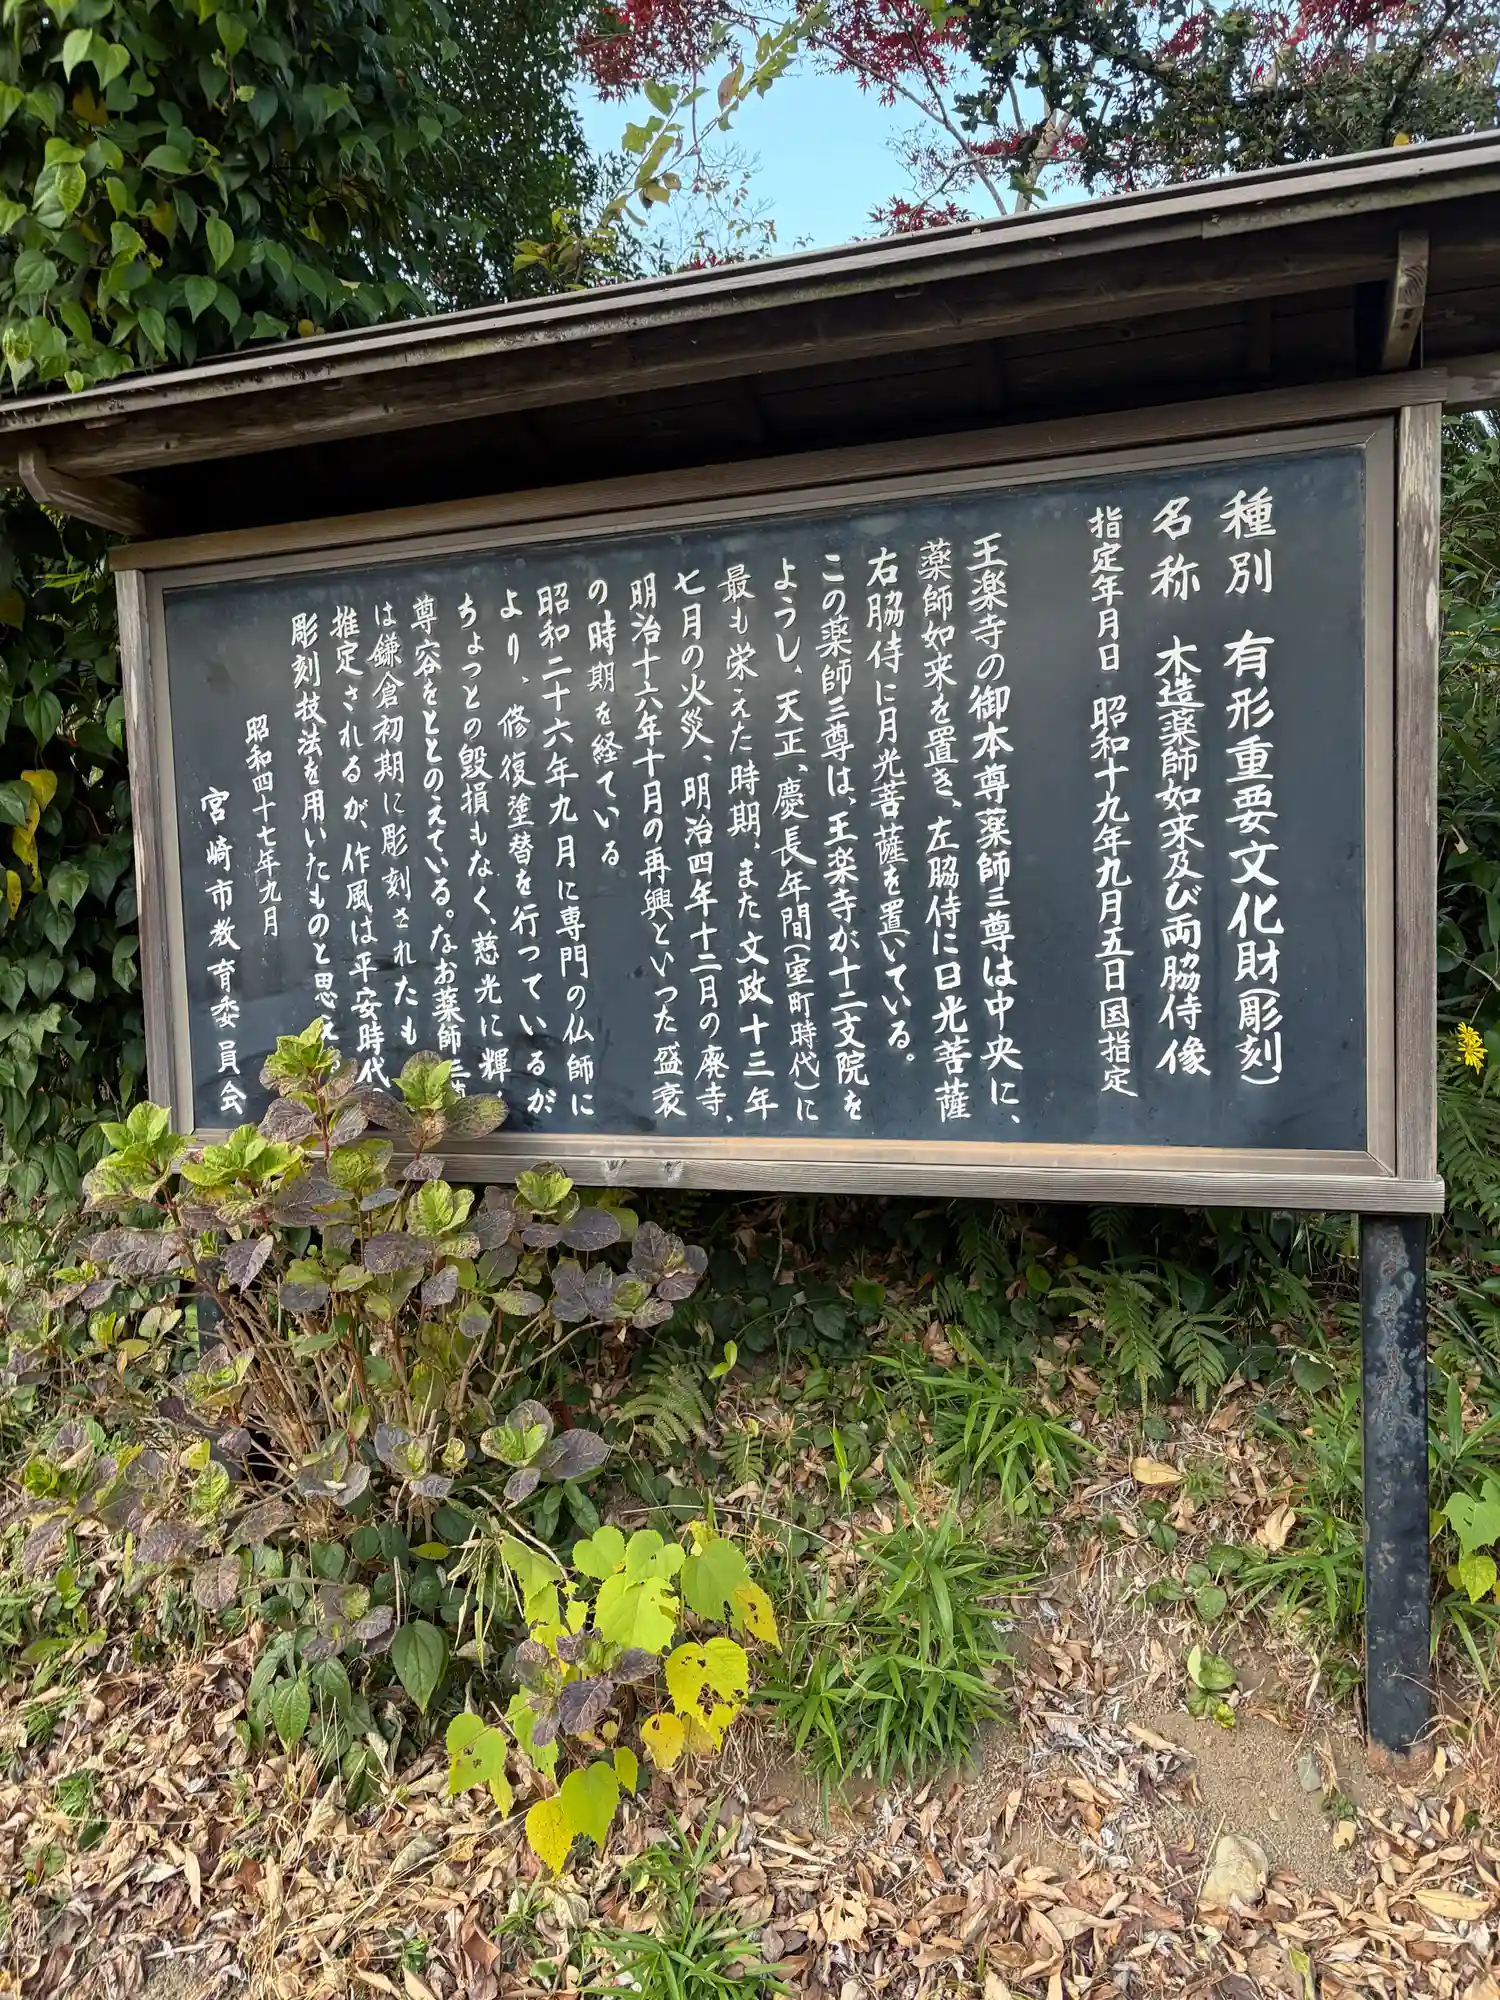 種別 有形重要文化財(彫刻)
名称 木造薬師如来及び両脇侍像
指定年月日 昭和十九年九月五日国指定
王楽寺の御本尊薬師三尊は中央に、
薬師如来を置き、左脇侍に日光菩薩
右脇侍に月光菩薩を置いている。
この薬師三尊は、王楽寺が十二支院を
ようし、天正、慶長年間(室町時代)に
最も栄えた時期、また文政十三年
七月の火災、明治四年十二月の廃寺、
明治十六年十月の再興といった盛衰
の時期を経ている
昭和二十六年九月に専門の仏師に
より、修復塗替を行っているが
ちょっとの毀損もなく、慈光に輝
尊容をととのえている。なお薬師三
は鎌倉初期に彫刻されたも
推定されるが、作風は平安時代
彫刻技法を用いたものと思え
昭和四十七年九月
宮崎市教育委員会